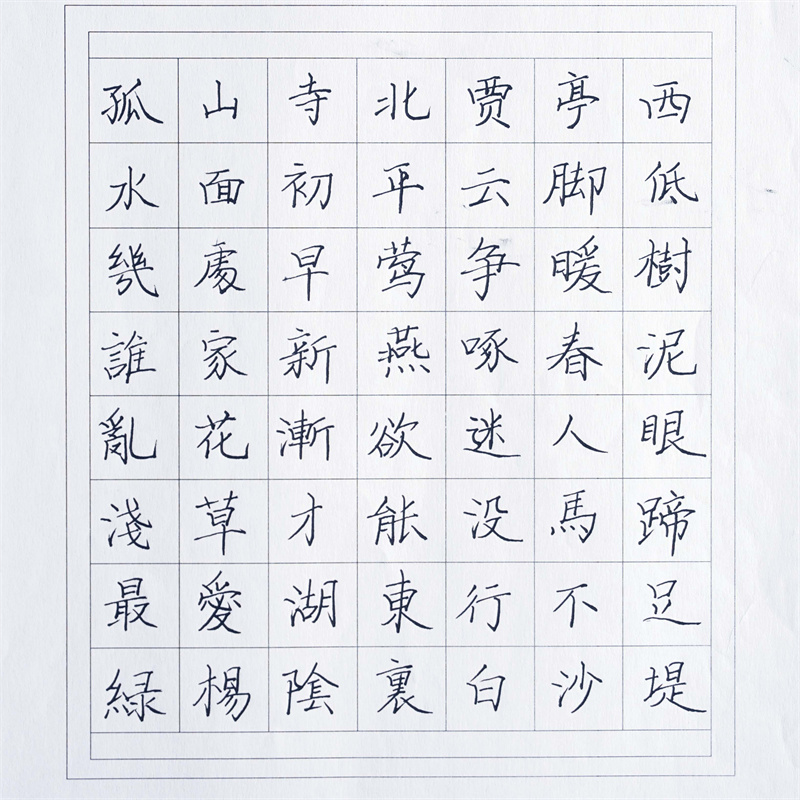 孤山寺北贾亭西
水面初平云脚低
幾處早莺争暖樹
誰家新燕啄春泥
亂花漸欲迷人眼
淺草才能没馬蹄
最愛湖東行不足
緑楊陰裏白沙堤